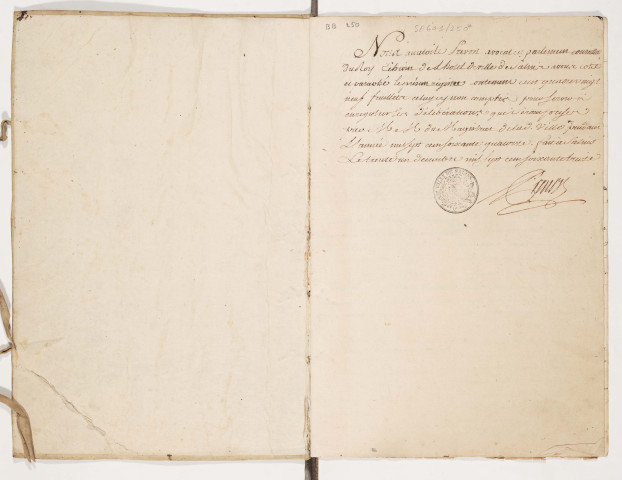 BB 250
Nous Anatoile Prevost avocat en parlement conseiller
du Roy Echevin de l'hotel de ville de Salins avons cotté
et paraphé le présent registre contenant cent quatre vingt
neuf feuillets celuy cy non compris pour servir a
enregistrer les délibérations que
M. M. du Magistrat de lad. Ville pendant
L'année mil sept cent soixante quatorze fait a Salins
Le trente un decembre mil sept cent soixante treize